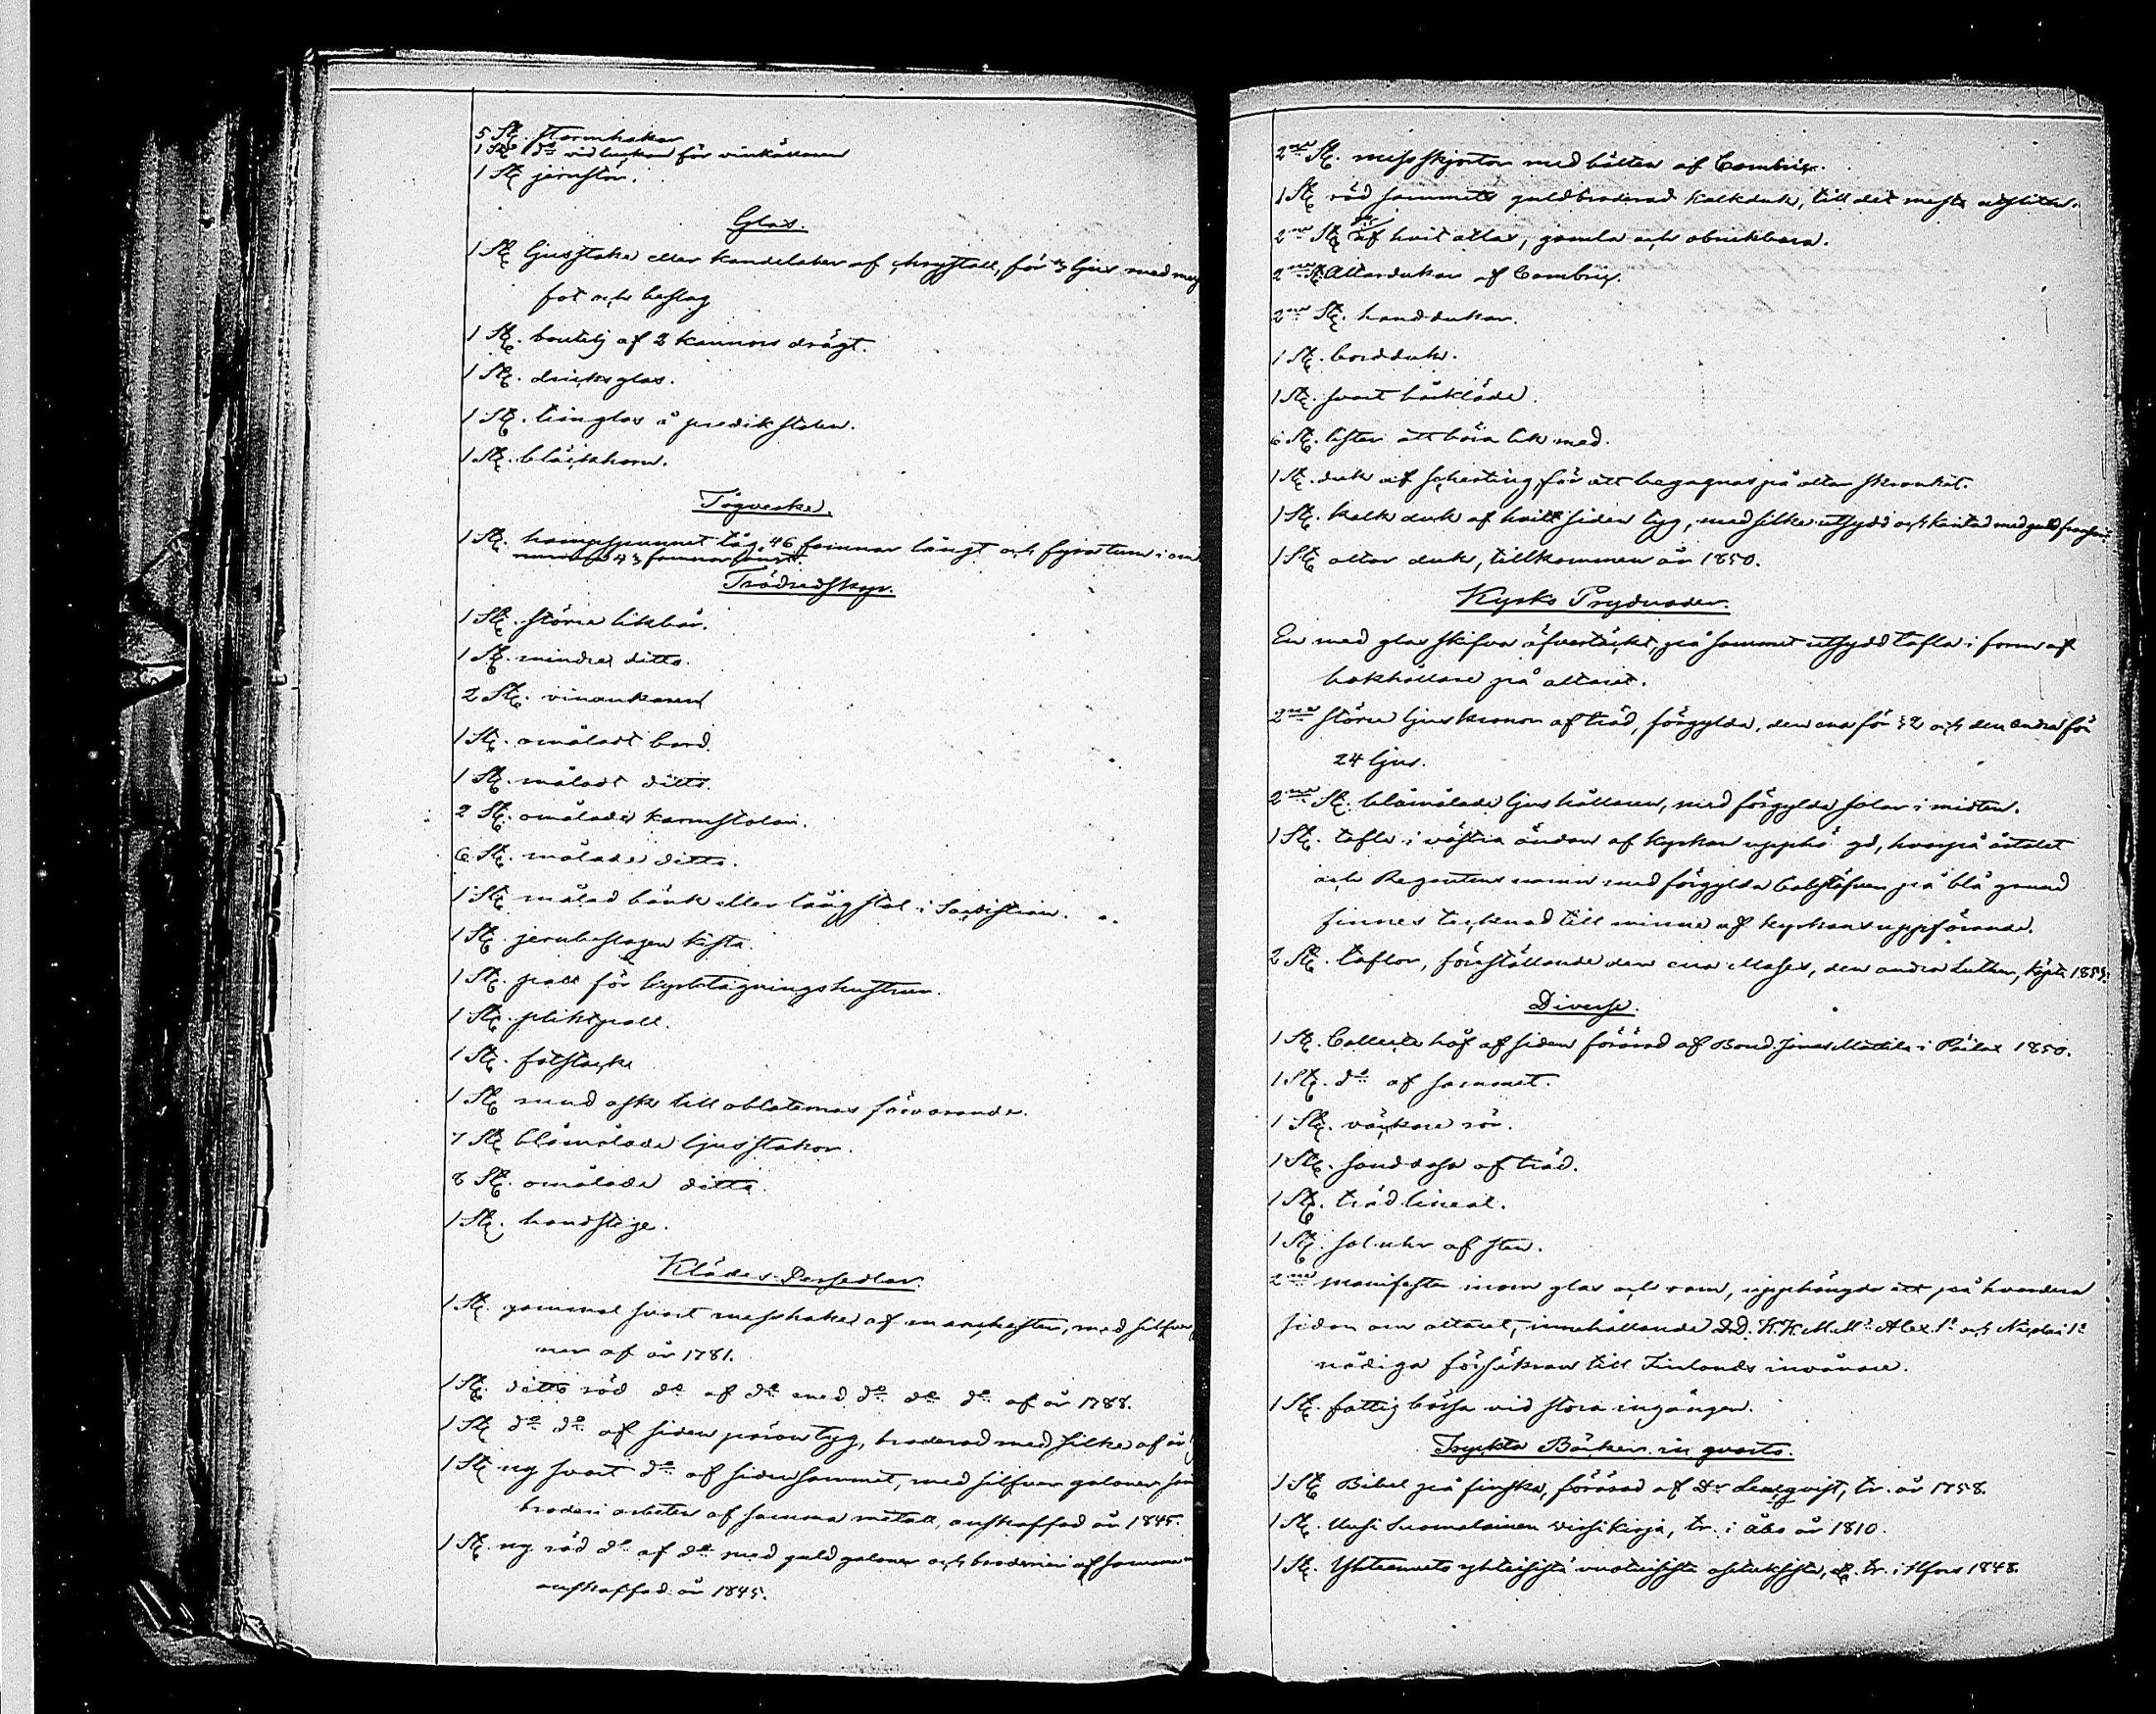 5 St. stormhakar
1 St. do vid luckan för vinkällaren
1 St. jernstör.
Glas.
1 St. ljusstake eller kandelaber af chrystall, för 3 ljus med
fot och beslag
1 St. boutelj af 2 kannors drägt.
1 St. dricksglas.
1 St. timglas å predikstolen.
1 St. bläckhorn.
Tågverke.
1 St. hampspunnet tåg, 46 famnar långt och fyra tum i om
43 famnar
Trädredskap.
1 St. större likbår.
1 St. mindre ditto.
2 St. vinankaren
1 St. omåladt bord.
1 St. måladt ditto.
2 St. omålade karmstolar.
6 St. målade ditto.
1 St. målad bänk eller långstol i Sacristian.
1 St. jernbeslagen kista.
1 St. pall för kyrktagningshustrur.
1 St. pliktpall.
1 St. fotstock
1 St. rund ask till oblaternas förvarande.
7 St. blåmålade ljusstakar.
8 St. omålade ditto.
1 St. handstege.
Klädes Persedlar.
1 St. gammal svart messhake af manchester, med silfver
ner af år 1781.
1 St. ditto röd do af do med do do do af år 1788.
1 St. do do af siden tyg, broderad med silke af år
1 St. ny svart do af siden sammet, med silfver galoner
broderi arbeten af samma metall, anskaffad år 1845.
1 St. ny röd do af do med guld galoner och broderier af samma
anskaffad år 1845.
2ne St. messkjortor med bälten af Cambrix.
1 St. röd sammets guldbroderad kalkduk, till det mesta utsliten.
2ne St. af hvit atlas, gamla och obrukbara.
2ne St. Altardukar af Cambrix.
2ne St. handdukar.
1 St. bordduk.
1 St. svart bårkläde.
6 St. lister att bära lik med.
1 St. duk af scherting, för att begagnas på altar skranket.
1 St. kalk duk af hvitt siden tyg, med silke utsydd och kantad med guld
1 St. altar duk, tillkommen år 1850.
Kyrko Prydnader.
En med glas skifva öfvertäckt, på sammet utsydd tafla i form af
bokhållare på altaret.
2ne större ljuskronor af träd, förgylda, den ena för 32 och den andra för
24 ljus.
2ne St. blåmålade ljushållaren, med förgylda solar i midten.
1 St. tafla i västra ändan af kyrkan upphögd, hvarpå årtalet
och Regentens namn med förgylda bokstäfver på blå grund
finnes tecknad till minne af kyrkans uppförande.
2 St. taflor, föreställande den ena Moses, den andra Luther, köpta
Diverse.
1 St. Collecte håf af siden förärad af Bond. Jonas Mattila i Pälax 1850.
1 St. do af sammet.
1 St. väckare rör.
1 St. sanddosa af träd.
1 St. träd lineal.
1 St. sol-uhr af sten.
2ne manifester inom glas och ram, upphängda ett på hvardera
sidan om altaret, innehållande D.D. K.K.M.M:s Alex. I:s och Nicolai I:s
nådiga försäkran till Finlands invånare.
1 St. fattig bössa vid stora ingången.
Tryckta Böcker in quarto.
1 St. Bibel på finska, förärad af Dr Lencqvist, tr. år 1758.
1 St. Uusi Suomalainen Virsikirja, tr. i Åbo år 1810.
1 St. Yhteenveto yhteisistä vuotuisista asetuksista, tr. i Hfors 1848.